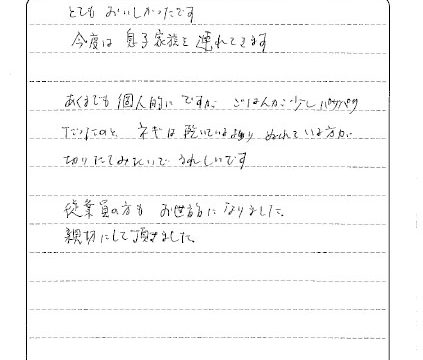 とても おいしかったです
今度は 息子家族を 連れてきます
あくまでも 個人的に ですが、ごはんが 少し パサパサ
だったのと ネギは 乾いているより ぬれている方が
切りたてみたいで うれしいです
従業員の方も お世話に なりました。
親切にして頂きました。